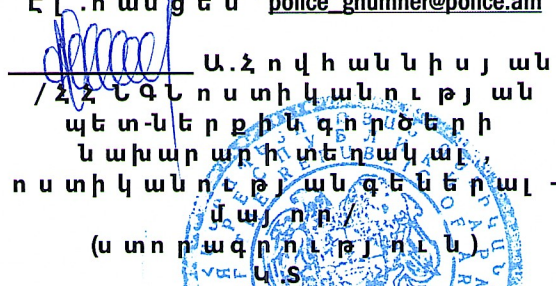 Էլ.հասցեն police_gnumner@police.am
Ա.Հովհաննիսյան
/ՀՀ ՆԳՆ ոստիկանության
պետ-ներքին գործերի
նախարարի տեղակալ,
ոստիկանության գեներալ-
մայոր/
(ստորագրություն)
Կ.Տ